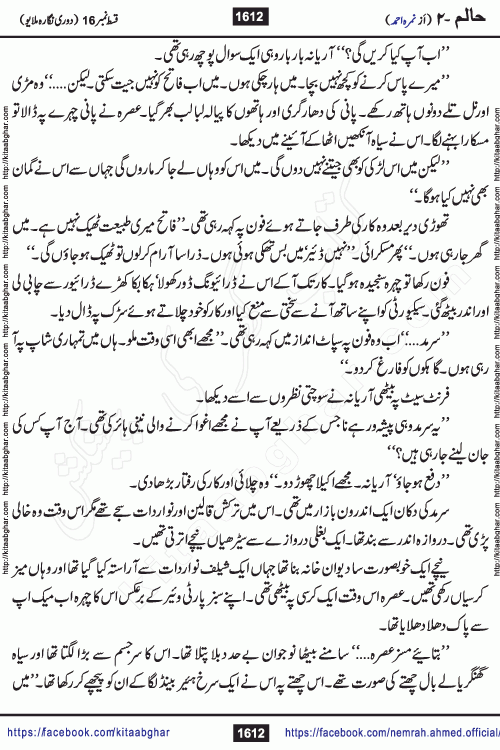 حالم -۲ (از نمرہ احمد)
1612
قسط نمبر 16 (دوری نگارہ ملایو)
’’اب آپ کیا کریں گی؟‘‘ آریانہ بار بار وہی ایک سوال پوچھ رہی تھی۔
’’میرے پاس کرنے کو کچھ نہیں بچا۔ میں ہار چکی ہوں۔ میں اب فاتح کو نہیں جیت سکتی۔ لیکن.....‘‘ وہ مڑی
اور نل تلے دونوں ہاتھ رکھے۔ پانی کی دھار گری اور ہاتھوں کا پیالہ لبالب بھر گیا۔ عصرہ نے پانی چہرے پہ ڈالا تو
مسکارا بہنے لگا۔ اس نے سیاہ آنکھیں اٹھا کے آئینے میں دیکھا۔
’’لیکن میں اس لڑکی کو بھی جیتنے نہیں دوں گی۔ میں اس کو وہاں لے جا کر ماروں گی جہاں سے اس نے گمان
بھی نہیں کیا ہوگا۔‘‘
تھوڑی دیر بعد وہ کار کی طرف جاتے ہوئے فون پہ کہہ رہی تھی۔ ’’فاتح میری طبیعت ٹھیک نہیں ہے۔ میں
گھر جا رہی ہوں۔‘‘ پھر مسکرائی۔ ’’نہیں ڈئیر‘ میں بس تھکی ہوئی ہوں۔ ذرا سا آرام کر لوں تو ٹھیک ہو جاؤں گی۔‘‘
فون رکھا تو چہرہ سنجیدہ ہو گیا۔ کار تک آ کے اس نے ڈرائیونگ ڈور کھولا‘ ہکا بکا کھڑے ڈرائیور سے چابی لی
اور اندر بیٹھ گئی۔ سیکیورٹی کو اپنے ساتھ آنے سے سختی سے منع کیا اور کار کو خود چلاتے ہوئے سڑک پہ ڈال دیا۔
’’سرمد....‘‘ اب وہ فون پہ سپاٹ انداز میں کہہ رہی تھی۔ ’’مجھے ابھی اسی وقت ملو۔ ہاں میں تمہاری شاپ پہ آ
رہی ہوں۔ گاہکوں کو فارغ کر دو۔‘‘
فرنٹ سیٹ پہ بیٹھی آریانہ نے سوچتی نظروں سے اسے دیکھا۔
’’یہ سرمد وہی پیشہ ور ہے نا جس کے ذریعے آپ نے مجھے اغوا کرنے والی نینی ہائر کی تھی۔ آج آپ کس کی
جان لینے جا رہی ہیں؟‘‘
’’دفع ہو جاؤ‘ آریانہ۔ مجھے اکیلا چھوڑ دو۔‘‘ وہ چلائی اور کار کی رفتار بڑھا دی۔
سرمد کی دکان ایک اندرون بازار میں تھی۔ اس میں ترکش قالین اور نوادرات سجے تھے مگر اس وقت وہ خالی
پڑی تھی۔ دروازہ اندر سے بند تھا۔ ایک بغلی دروازے سے سیڑھیاں نیچے اترتی تھیں۔
نیچے ایک خوبصورت سا دیوان خانہ بنا تھا جہاں ایک شیلف نوادرات سے آراستہ کیا گیا تھا اور وہاں میز
کرسیاں رکھی تھیں۔ عصرہ اس وقت ایک کرسی پہ بیٹھی تھی۔ اپنے سبز پارٹی وئیر کے برعکس اس کا چہرہ اب میک اپ
سے پاک دھلا دھلایا تھا۔
’’بتائیے مسز عصرہ....‘‘ سامنے بیٹھا نوجوان بے حد دبلا پتلا تھا۔ اس کا سر جسم سے بڑا لگتا تھا اور سیاہ
گھنگریالے بال چھتے کی صورت تھے۔ اس چھتے پہ اس نے ایک سرخ ہئیر بینڈ لگا کے ان کو پیچھے کر رکھا تھا۔ ’’میں
https://facebook.com/kitaabghar
1612
https://facebook.com/nemrah.ahmed.official/
http://kitaabghar.com